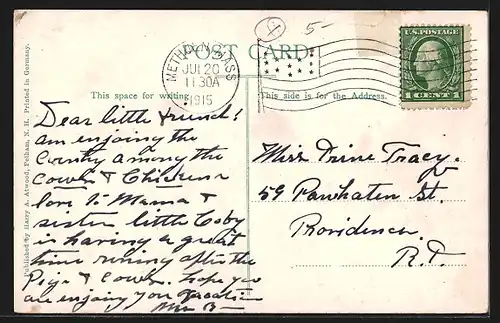 POST CARD
METHUEN MASS
JUL 20
11 30A
1915
5-
U.S. POSTAGE
1 CENT 1
This space for writing
This side is for the Address.
Dear little friend I
am enjoying the
Country among the
Cows & Chickens
love to Mama &
sister little Toby
is having a great
time running after the
Pigs & Cows. hope you
are enjoying you vacation
Mrs B-
Miss Tracy.
59 Powhaten St.
Providence
R.I.
Published by Harry A. Atwood, Pelham, N. H. Printed in Germany.